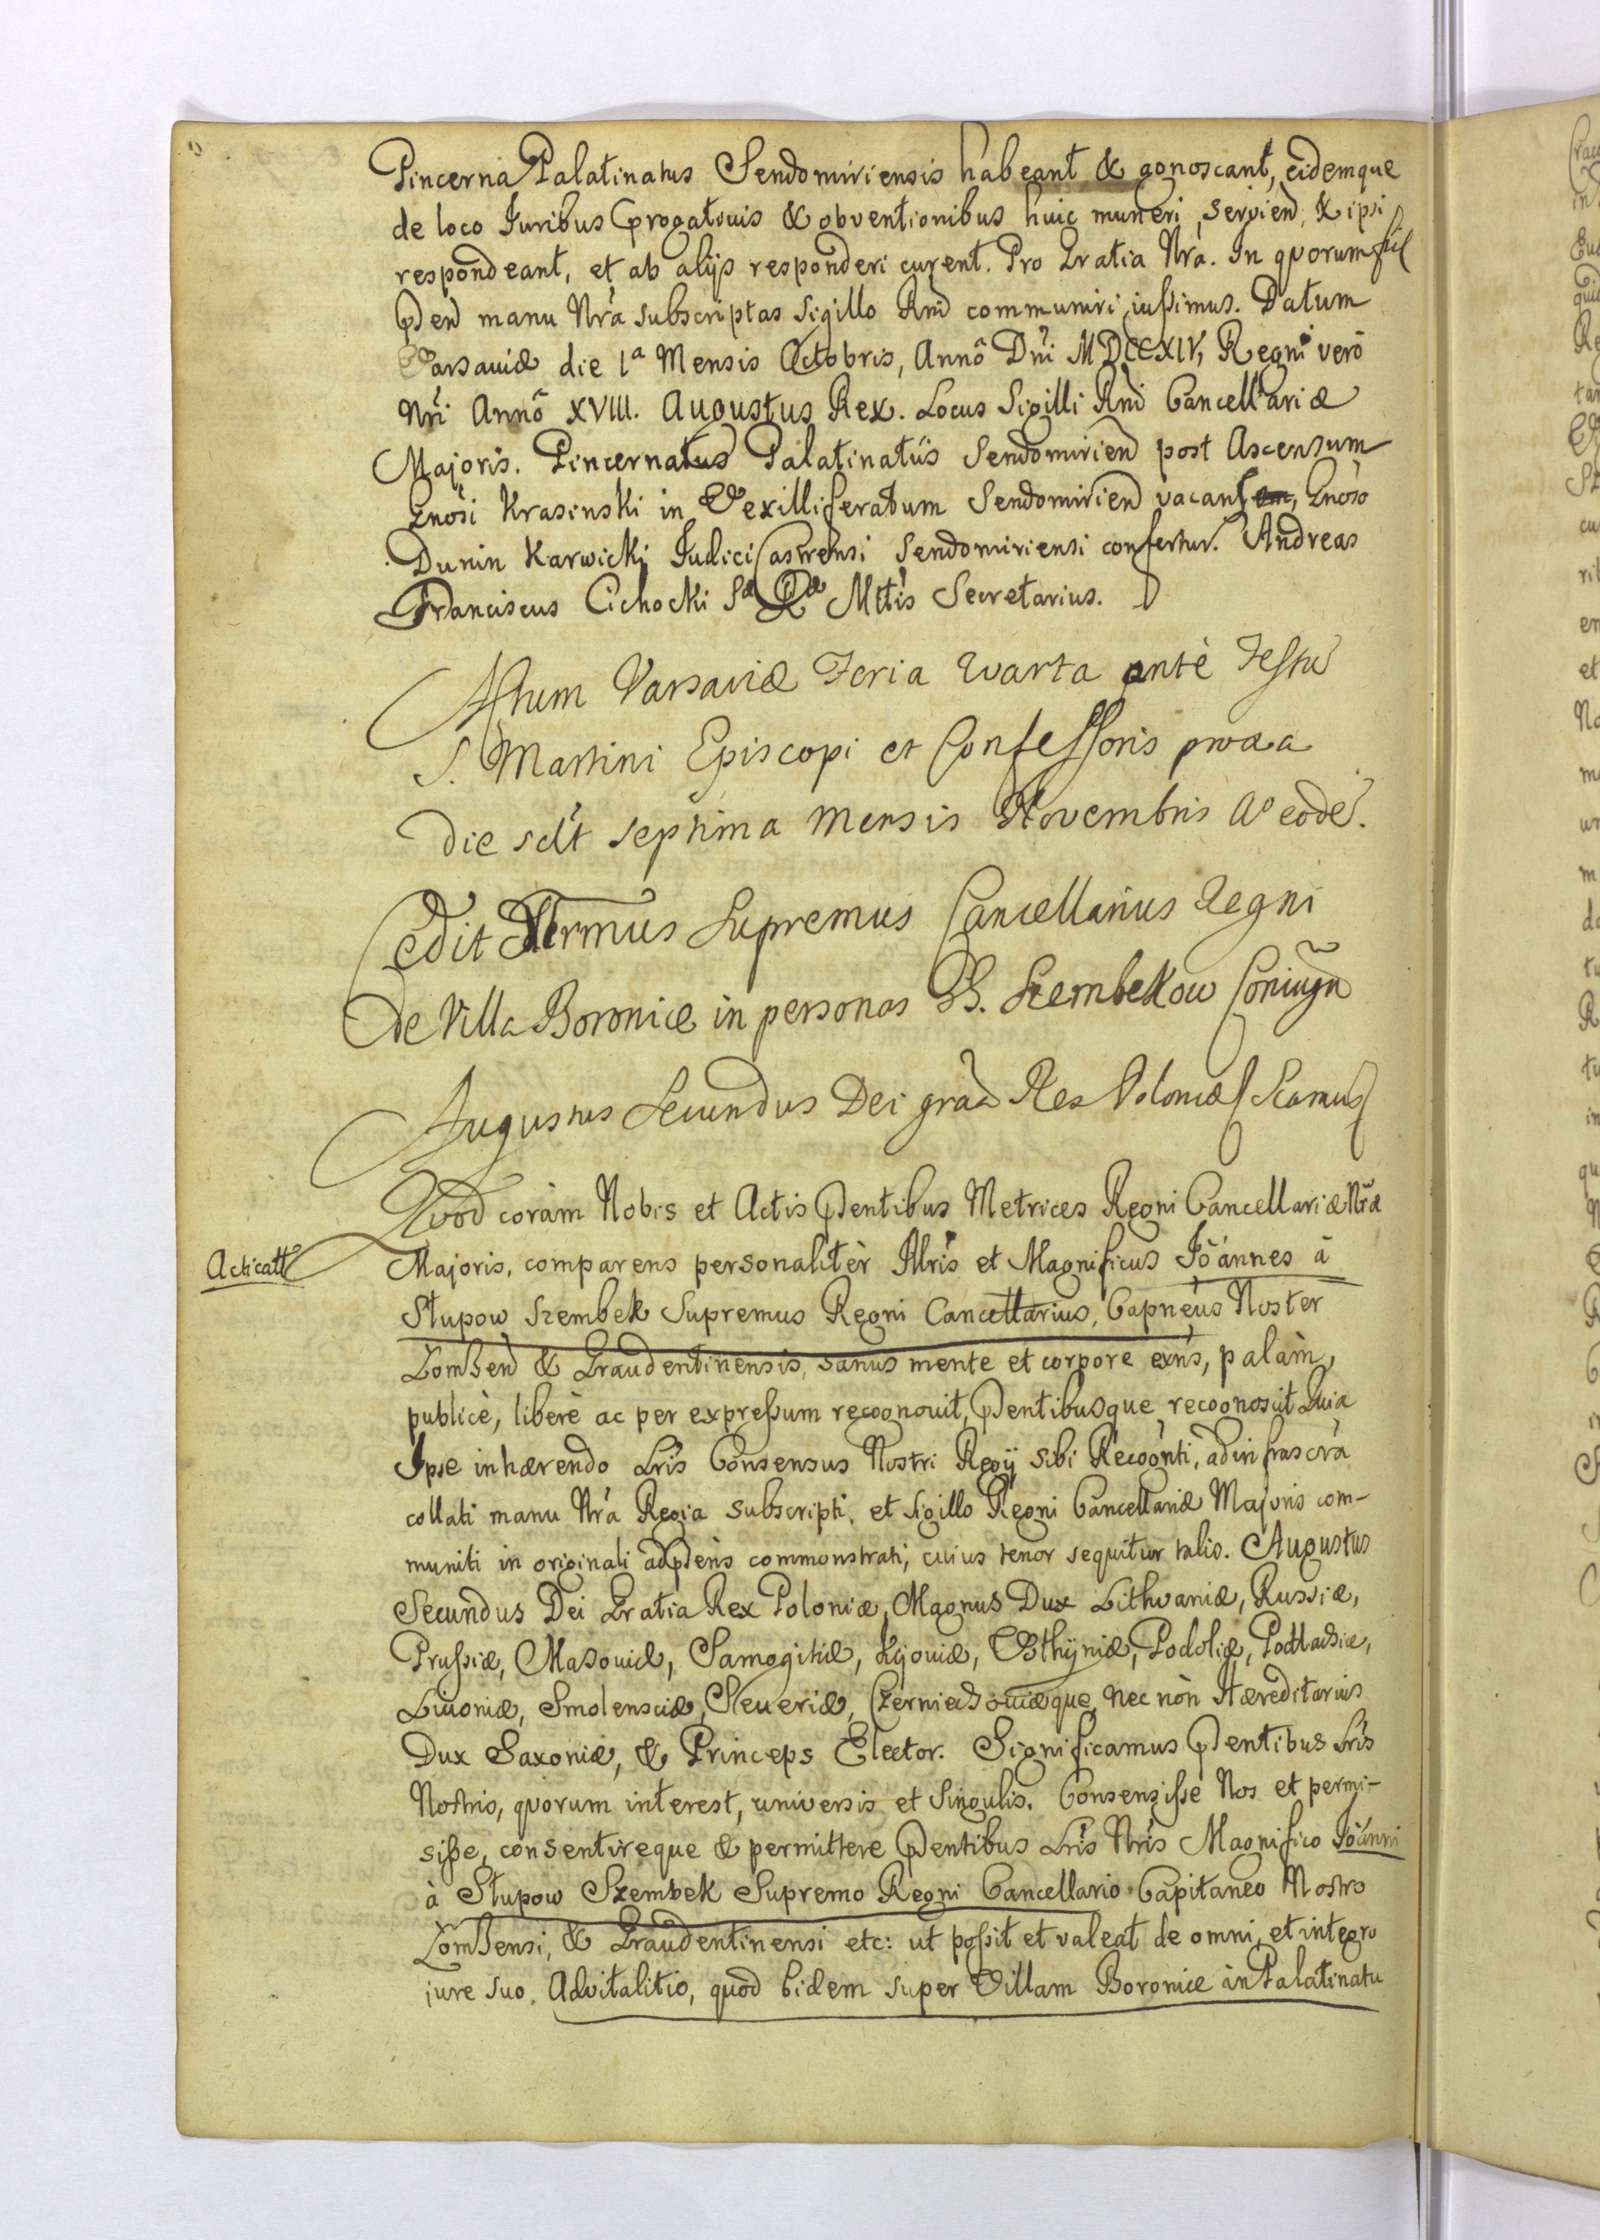 Pincerna Palatinatus Sendomiriensis habeant & agnoscant, eidemque
de loco Iuribus Prrogativis & obventionibus huic muneri, servien̄. & ipsi
respondeant, et ab alijs responderi curent. Pro Gratia Nrā. In quorum fid̄
Pn̄ manu Nrā subscriptas sigillo Rn̄i communiri iussimus. Datum
Varsaviæ die 1a Mensis Octobris, Annô Dn̄i MDCCXIV, Regni verô
Nrī Annô XVIII. Augustus Rex. Locus Sigilli Rn̄i Cancellariæ
Majoris. Pincernatus Palatinatûs Sendomirien̄ post Ascensum
Gnōsi Krasinski in Vexilliferatum Sendomirien̄ vacans, Gnōso
Dunin Karwicki Iudici Castrensi Sendomiriensi confertur. Andreas
Franciscus Cichocki Sæ Ræ Mttis Secretarius.
Actum Varsaviæ Feria Quarta antè Festū
S. Martini Episcopi et Confessoris proxa
die sclt septima Mensis Novembris Ao eodē.
Cedit Illrmus Supremus Cancellarius Regni
de Villa Boronice in personas GG. Szembekow Coniugū
Augustus Secundus Dei grāa Rex Poloniæ Scamus
Quod coràm Nobis et Actis Pn̄tibus Metrices Regni Cancellariæ Nræ
Acticatt
Majoris, comparens personalitèr Illris et Magnificus Ioānnes à
Słupow Szembek Supremus Regni Cancellarius, Capnēus Noster
Łomzen̄ & Graudentinensis, sanus mente et corpore exn̄s, palàm,
publicè, liberè ac per expressum recognovit, Pn̄tibusque recognoscit Quia
Ipse inhærendo Lris Consensus Nostri Regij sibi Recogn̄ti, ad infrascrā
collati manu Nrā Regia subscripti, et sigillo Regni Cancellariæ Majoris com-
muniti in originali ad Pn̄s commonstrati, cuius tenor sequitur talis. Augustus
Secundus Dei Gratia Rex Poloniæ, Magnus Dux Lithvaniæ, Russiæ,
Prussiæ, Masoviæ, Samogitiæ, Kijoviæ, Volhyniæ, Podoliæ, Podlachiæ,
Livoniæ, Smolensciæ, Severiæ, Czerniechoviæque, nec nòn Hæreditarius
Dux Saxoniæ, & Princeps Elector. Significamus Pn̄tibus Lris
Nostris, quorum interest, universis et singulis. Consensisse Nos et permi-
sisse, consentireque & permittere Pn̄tibus Lris Nris Magnifico Ioānni
à Słupow Szembek Supremo Regni Cancellario Capitaneo Nostro
Łomzensi, & Graudentinensi etc: ut possit et valeat de omni, et integro
iure suo, Advitalitio, quod eidem super Villam Boronice in Palatinatu